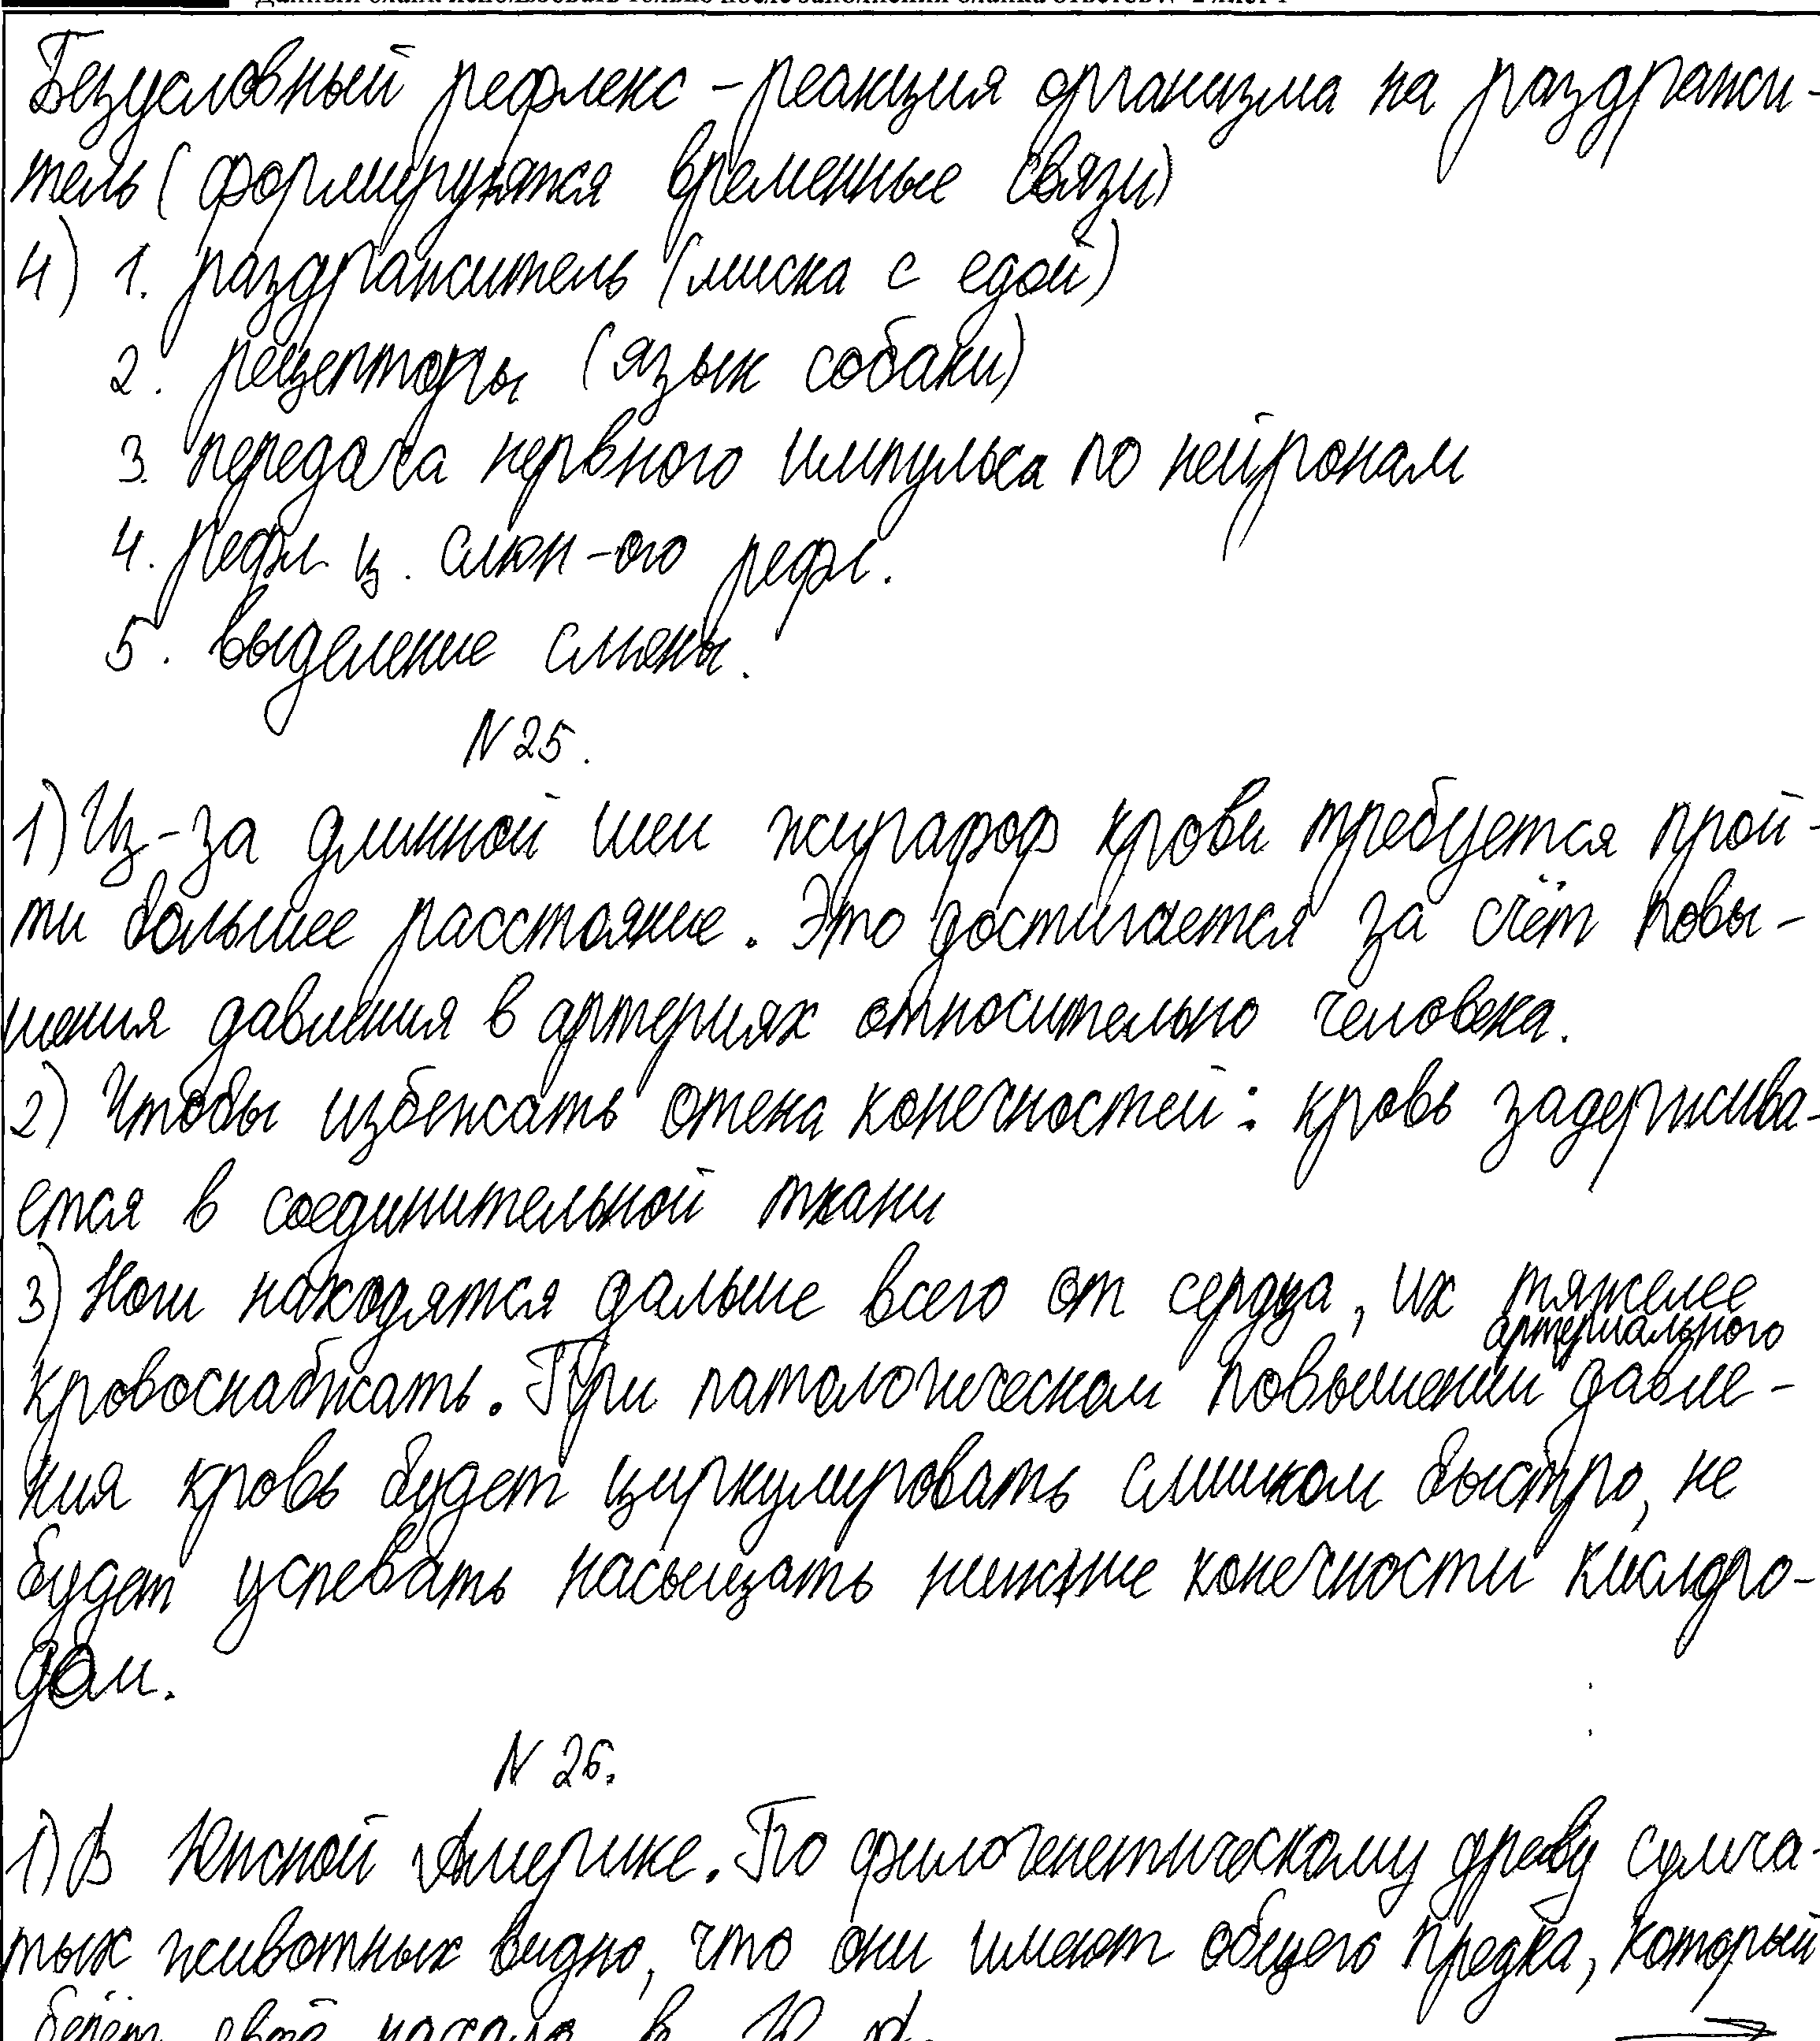 Данный бланк использовать только после заполнения бланка ответов № 2 лист 1
Безусловный рефлекс - реакция организма на раздражи-
тель (формируются временные связи)
4) 1. раздражитель (миска с едой)
2. рецепторы (язык собаки)
3. передача нервного импульса по нейронам
4. рефл. ц. слюн-ого рефл.
5. выделение слюны.
N 25.
1) Из-за длинной шеи жирафов крови требуется прой-
ти большее расстояние. Это достигается за счёт повы-
шения давления в артериях относительно человека.
2) Чтобы избежать отека конечностей: кровь задержива-
ется в соединительной ткани
3) Ноги находятся дальше всего от сердца, их тяжелее
артериального
кровоснабжать. При патологическом повышении давле-
ния кровь будет циркулировать слишком быстро, не
будет успевать насыщать нижние конечности кислоро-
дом.
N 26.
1) В Южной Америке. По филогенетическому древу сумча-
тых животных видно, что они имеют общего предка, который
берёт своё начало в Ю. А.